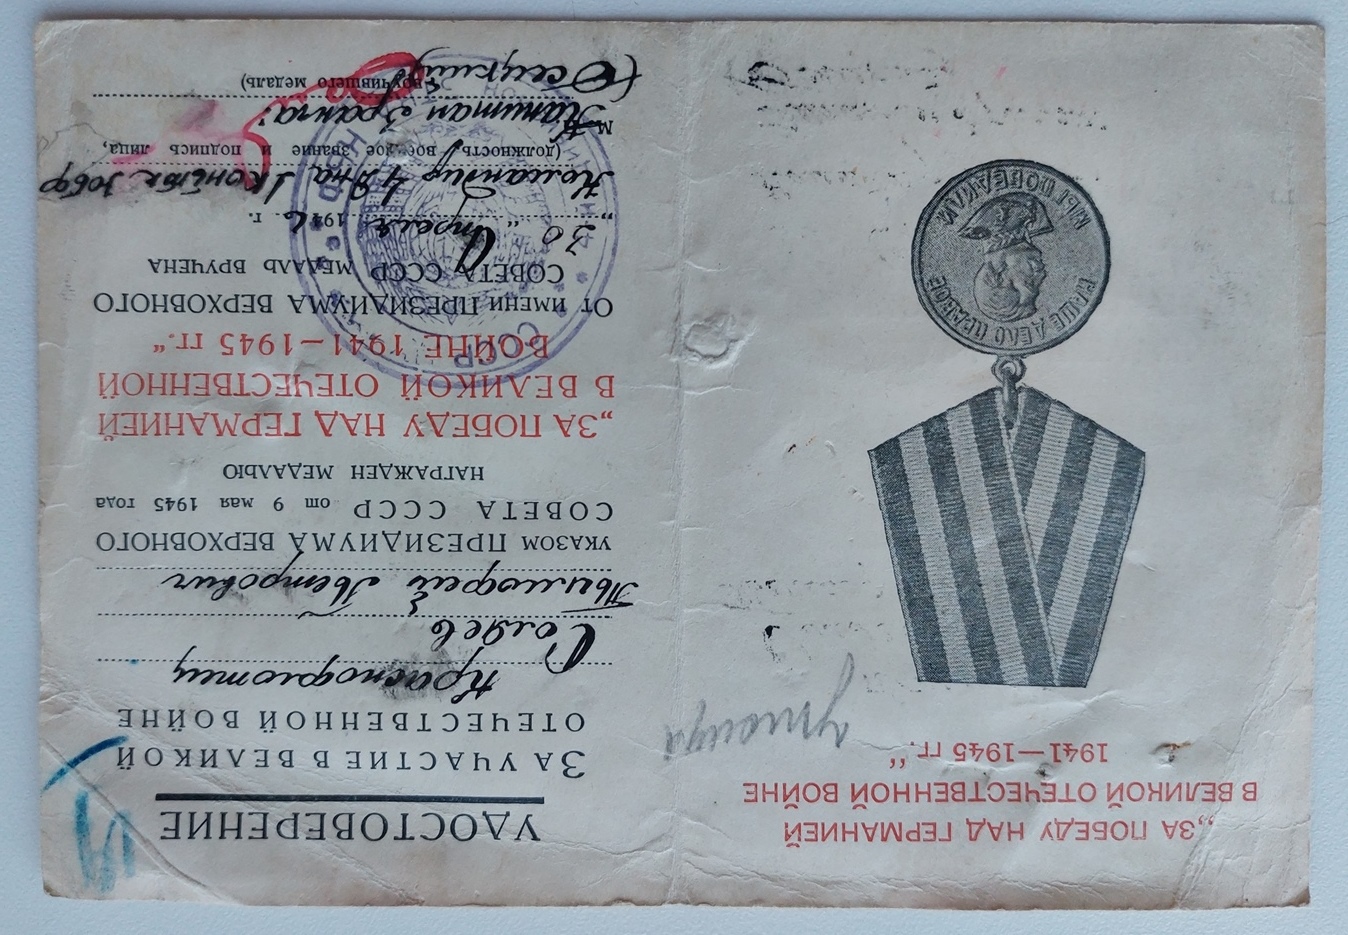 „ЗА ПОБЕДУ НАД ГЕРМАНИЕЙ
В ВЕЛИКОЙ ОТЕЧЕСТВЕННОЙ ВОЙНЕ
1941—1945 гг.“
НАШЕ ДЕЛО ПРАВОЕ
МЫ ПОБЕДИЛИ
УДОСТОВЕРЕНИЕ
ЗА УЧАСТИЕ В ВЕЛИКОЙ
ОТЕЧЕСТВЕННОЙ ВОЙНЕ
Краснофлотец
Соляев
Тимофей Петрович
УКАЗОМ ПРЕЗИДИУМА ВЕРХОВНОГО
СОВЕТА СССР от 9 мая 1945 года
НАГРАЖДЕН МЕДАЛЬЮ
„ЗА ПОБЕДУ НАД ГЕРМАНИЕЙ
В ВЕЛИКОЙ ОТЕЧЕСТВЕННОЙ
ВОЙНЕ 1941—1945 гг.“
ОТ ИМЕНИ ПРЕЗИДИУМА ВЕРХОВНОГО
СОВЕТА СССР МЕДАЛЬ ВРУЧЕНА
„30“ Апреля 1946 г.
Командир
(должность, воен ое звание и подпись лица,
М Капитан 3 ранга:
вручившего медаль)
(Осецкий)
СССР